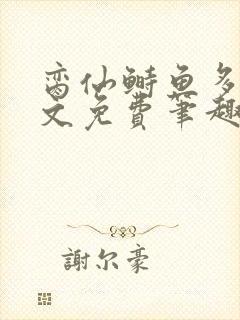 脔仙鲥鱼多
文免费笔趣
謝尔豪